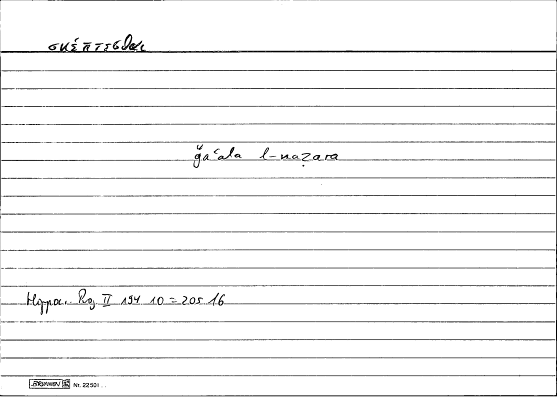 σκέπτεσθαι
ǧaʿala l-naẓara
Hippocr. Reg. II 194 10 = 205 16
BRUNNEN Nr. 22501